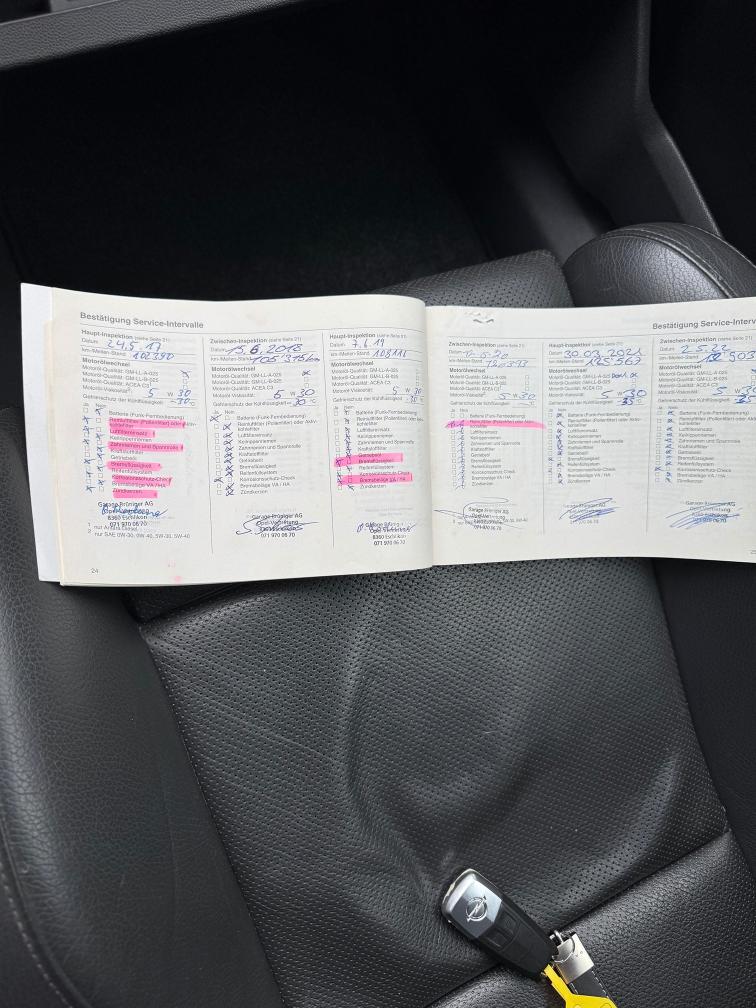 Bestätigung Service-Intervalle
Haupt-Inspektion (siehe Seite 21)
Datum 24.5.17
km-/Meilen-Stand 102390
Motorölwechsel
Motoröl-Qualität: GM-LL-A-025
Motoröl-Qualität: GM-LL-B-025
Motoröl-Qualität: ACEA C3
Motoröl-Viskosität 5 W 30
Gefrierschutz der Kühlflüssigkeit -30 °C
Ja Nein
Batterie (Funk-Fernbedienung)
Reinluftfilter (Pollenfilter) oder Aktiv-
kohlefilter
Luftfiltereinsatz
Keilrippenriemen
Zahnriemen und Spannrolle
Kraftstofffilter
Getriebeöl
Bremsflüssigkeit
Reifenfüllsystem
Korrosionsschutz-Check
Bremsbeläge VA / HA
Zündkerzen
Garage Brüniger AG
Opel-Vertretung
8360 Eschlikon
071 970 06 70
nur SAE 0W-30, 0W-40, 5W-30, 5W-40
24
Zwischen-Inspektion (siehe Seite 21)
Datum 15.6.2018
km-/Meilen-Stand
Motorölwechsel
Motoröl-Qualität: GM-LL-A-025
Motoröl-Qualität: GM-LL-B-025
Motoröl-Qualität: ACEA C3
Motoröl-Viskosität 5 W 30
Gefrierschutz der Kühlflüssigkeit -30 °C
Ja Nein
Batterie (Funk-Fernbedienung)
Reinluftfilter (Pollenfilter) oder Aktiv-
kohlefilter
Luftfiltereinsatz
Keilrippenriemen
Zahnriemen und Spannrolle
Kraftstofffilter
Getriebeöl
Bremsflüssigkeit
Reifenfüllsystem
Korrosionsschutz-Check
Bremsbeläge VA / HA
Zündkerzen
Garage Brüniger AG
Opel-Vertretung
071 970 06 70
Haupt-Inspektion (siehe Seite 21)
Datum 7.6.19
km-/Meilen-Stand 108111
Motorölwechsel
Motoröl-Qualität: GM-LL-A-025
Motoröl-Qualität: GM-LL-B-025
Motoröl-Qualität: ACEA C3
Motoröl-Viskosität 5 W 30
Gefrierschutz der Kühlflüssigkeit -30 °C
Ja Nein
Batterie (Funk-Fernbedienung)
Reinluftfilter (Pollenfilter) oder Aktiv-
kohlefilter
Luftfiltereinsatz
Keilrippenriemen
Zahnriemen und Spannrolle
Kraftstofffilter
Getriebeöl
Bremsflüssigkeit
Reifenfüllsystem
Korrosionsschutz-Check
Bremsbeläge VA / HA
Zündkerzen
Garage Brüniger AG
8360 Eschlikon
071 970 06 70
Bestätigung Service-Interv
Zwischen-Inspektion (siehe Seite 21)
Datum
km-/Meilen-Stand
Motorölwechsel
Motoröl-Qualität: GM-LL-A-025
Motoröl-Qualität: GM-LL-B-025
Motoröl-Qualität: ACEA C3
Motoröl-Viskosität 5 W 30
Gefrierschutz der Kühlflüssigkeit
Ja Nein
Batterie (Funk-Fernbedienung)
Reinluftfilter (Pollenfilter) oder Aktiv-
kohlefilter
Luftfiltereinsatz
Keilrippenriemen
Zahnriemen und Spannrolle
Kraftstofffilter
Getriebeöl
Bremsflüssigkeit
Reifenfüllsystem
Korrosionsschutz-Check
Bremsbeläge VA / HA
Zündkerzen
Garage Brüniger AG
Opel-Vertretung
071 970 06 70
Haupt-Inspektion (siehe Seite 21)
Datum 30.03.2021
km-/Meilen-Stand 125'567
Motorölwechsel
Motoröl-Qualität: GM-LL-A-025
Motoröl-Qualität: GM-LL-B-025
Motoröl-Qualität: ACEA C3
Motoröl-Viskosität 5 W 30
Gefrierschutz der Kühlflüssigkeit
Ja Nein
Batterie (Funk-Fernbedienung)
Reinluftfilter (Pollenfilter) oder Aktiv-
kohlefilter
Luftfiltereinsatz
Keilrippenriemen
Zahnriemen und Spannrolle
Kraftstofffilter
Getriebeöl
Bremsflüssigkeit
Reifenfüllsystem
Korrosionsschutz-Check
Bremsbeläge VA / HA
Zündkerzen
Garage Brüniger AG
Opel-Vertretung
071 970 06 70
Zwischen-Inspektion (siehe Seite 21)
Datum 2.5.22
km-/Meilen-Stand
Motorölwechsel
Motoröl-Qualität: GM-LL-A-025
Motoröl-Qualität: GM-LL-B-025
Motoröl-Qualität: ACEA C3
Motoröl-Viskosität 5 W
Gefrierschutz der Kühlflüssigkeit
Ja Nein
Batterie (Funk-Fernbedienung)
Reinluftfilter (Pollenfilter) oder Aktiv-
kohlefilter
Luftfiltereinsatz
Keilrippenriemen
Zahnriemen und Spannrolle
Kraftstofffilter
Getriebeöl
Bremsflüssigkeit
Reifenfüllsystem
Korrosionsschutz-Check
Bremsbeläge VA / HA
Zündkerzen
Garage Brüniger AG
Opel-Vertretung
071 970 06 70